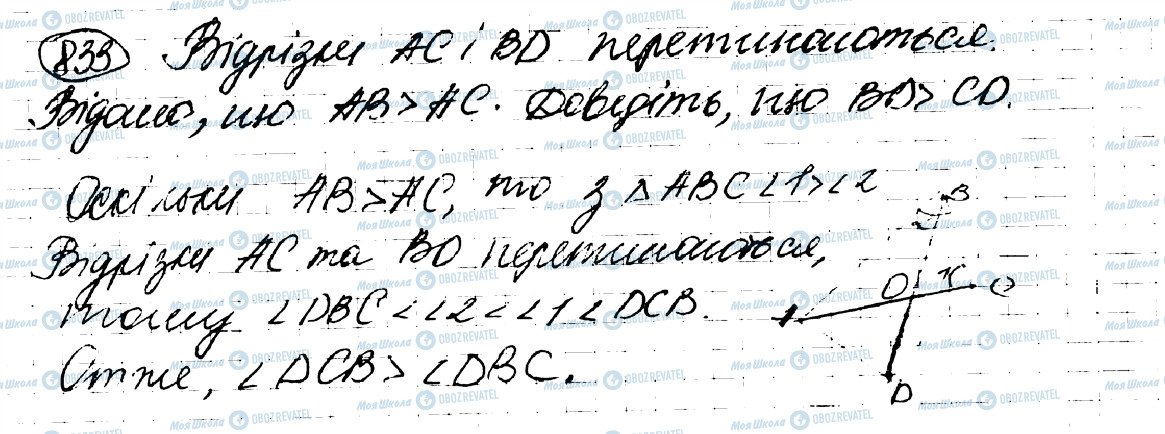 833 Відрізки AC і BD перетинаються.
Відомо, що AB > AC. Доведіть, що BD > CD.
Оскільки AB > AC, то з △ABC ∠1 > ∠2
Відрізки AC та BD перетинаються,
тому ∠DBC < ∠2 < ∠1 < ∠DCB.
Отже, ∠DCB > ∠DBC.
B
O
C
D